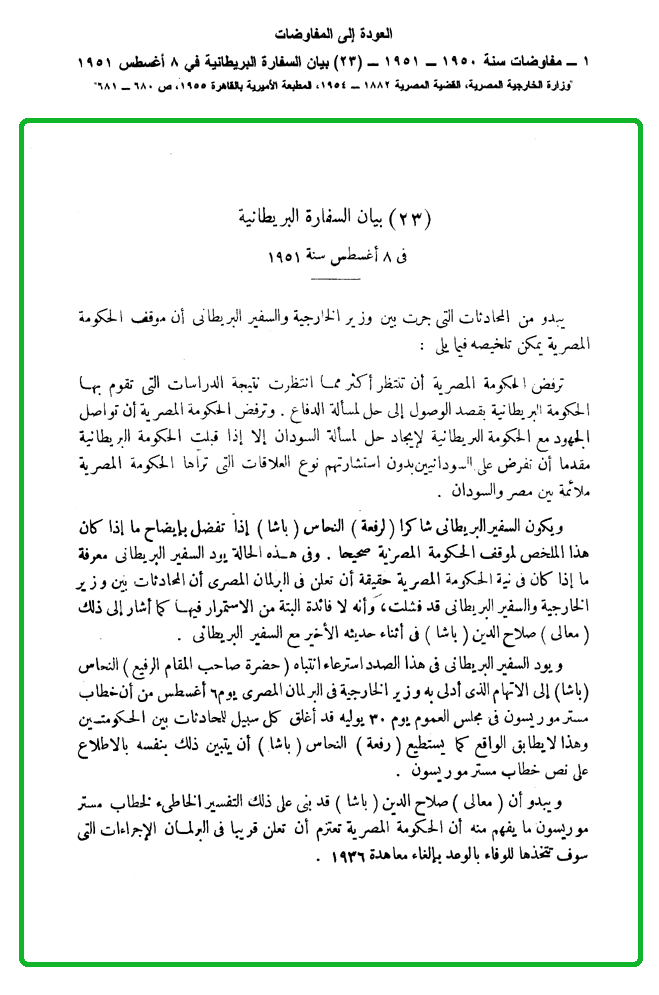 العودة إلى المفاوضات
١ ــ مفاوضات سنة ١٩٥٠ ــ ١٩٥١ ــ (٢٣) بيان السفارة البريطانية في ٨ أغسطس ١٩٥١
"وزارة الخارجية المصرية، القضية المصرية ١٨٨٢ ــ ١٩٥٤، المطبعة الأميرية بالقاهرة ١٩٥٥، ص ٦٨٠ ــ ٦٨١"
(٢٣) بيان السفارة البريطانية
فى ٨ أغسطس سنة ١٩٥١
يبدو من المحادثات التى جرت بين وزير الخارجية والسفير البريطانى أن موقف الحكومة
المصرية يمكن تلخيصه فيما يلى :
ترفض الحكومة المصرية أن تنتظر أكثر مما انتظرت نتيجة الدراسات التى تقوم بها
الحكومة البريطانية بقصد الوصول إلى حل لمسألة الدفاع . وترفض الحكومة المصرية أن تواصل
الجهود مع الحكومة البريطانية لإيجاد حل لمسألة السودان إلا إذا قبلت الحكومة البريطانية
مقدما أن نفرض على السودانيين بدون استشارتهم نوع العلاقات التى تراها الحكومة المصرية
ملائمة بين مصر والسودان .
ويكون السفير البريطانى شاكرا (لرفعة) النحاس (باشا) إذا تفضل بإيضاح ما إذا كان
هذا الملخص لموقف الحكومة المصرية صحيحا . وفى هذه الحالة يود السفير البريطانى معرفة
ما إذا كان فى نية الحكومة المصرية حقيقة أن تعلن فى البرلمان المصرى أن المحادثات بين وزير
الخارجية والسفير البريطانى قد فشلت، وأنه لا فائدة البتة من الاستمرار فيها كما أشار إلى ذلك
(معالى) صلاح الدين (باشا) فى أثناء حديثه الأخير مع السفير البريطانى .
ويود السفير البريطانى فى هذا الصدد استرعاء انتباه (حضرة صاحب المقام الرفيع) النحاس
(باشا) إلى الاتهام الذى أدلى به وزير الخارجية فى البرلمان المصرى يوم ٦ أغسطس من أن خطاب
مستر موريسون فى مجلس العموم يوم ٣٠ يوليه قد أغلق كل سبيل للمحادثات بين الحكومتين
وهذا لا يطابق الواقع كما يستطيع (رفعة) النحاس (باشا) أن يتبين ذلك بنفسه بالاطلاع
على نص خطاب مستر موريسون .
ويبدو أن (معالى) صلاح الدين (باشا) قد بنى على ذلك التفسير الخاطىء لخطاب مستر
موريسون ما يفهم منه أن الحكومة المصرية تعتزم أن تعلن قريبا فى البرلمان الإجراءات التى
سوف تتخذها للوفاء بالوعد بإلغاء معاهدة ١٩٣٦ .